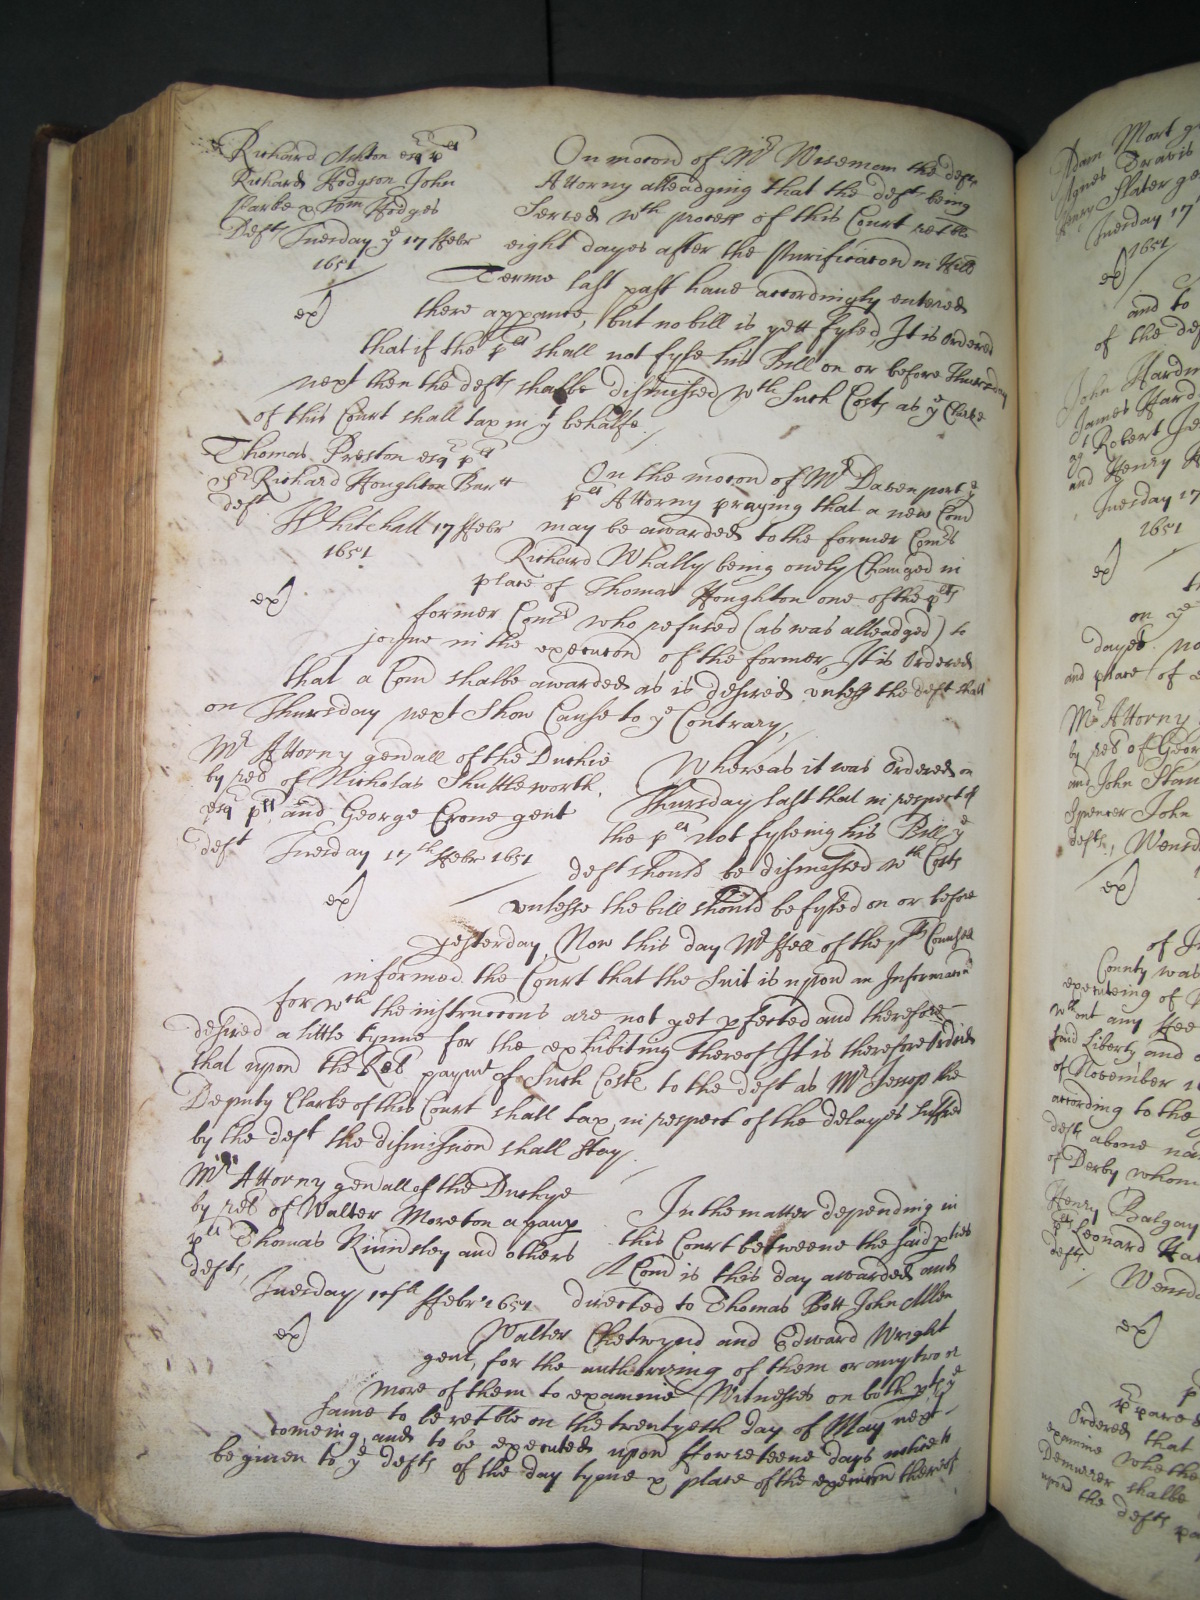 Richard Ashton esqr plt
Richard Hodgson John
Clarke & Tom Hodges
Defts Tuesday ye 17 Febr
1651
ex
On mocon of Mr Wiseman the defts
Attorny alleadging that the deft being
Served wth process of this Court retble
eight dayes after the Purificacon in Hill
Terme last past haue accordingly entered
there appance, but no bill is yett fyled, It is Ordered
that if the plt shall not fyle his Bill on or before Thursday
next then the defts shalbe dismissed wth Such Costs as ye Clarke
of this Court shall tax in yt behalfe
Thomas Preston esqr plt
Sr Richard Houghton Bartt
deft
Whitehall 17 Febr
1651
ex
On the mocon of Mr Davenport ye
plts Attorny praying that a new Com
may be awarded to the former Comrs
Richard Whally being onely Changed in
place of Thomas Houghton one of the plts
former Comrs who refused (as was alleadged) to
joyne in the execucon of the former, It is Ordered
that a Com shalbe awarded as is desired vnless the deft shall
on Thursday next Show Cause to ye Contrary,
Mr Attorny genall of the Duchie
by rel of Nicholas Shuttleworth
esqr plt and George Crone gent
deft Tuesday 17th Febr 1651
ex
Whereas it was Ordered on
Thursday last that in respect of
the plts not fyleing his Bill ye
deft should be dismissed wth Costs
vnlesse the bill should be fyled on or before
yesterday, Now this day Mr Fell of the plts Counsell
informed the Court that the Suit is upon an Informacon
for wch the instruccons are not yet pfected and therefore
desired a little tyme for the exhibiting thereof It is therefore Ordered
that upon the Rels paymt of Such Costs to the deft as Mr Jessop the
Deputy Clarke of this Court shall tax, in respect of the delayes Suffred
by the deft the dismission shall Stay
Mr Attorny genall of the Duchye
by rel of Walter Moreton a paup
plt Thomas and others
defts,
Tuesday 17th Febr 1651
ex
In the matter depending in
this Court betweene the said pties
A Com is this day awarded and
directed to Thomas Bott John Allen
Walter Chetwynd and Edward Wright
gent, for the authorizing of them or any two or
more of them to examine Witnesses on both pts ye
same to be retble on the twentyeth day of May next
comeing, and to be executed upon fowreteene days notice to
be given to ye defts of the day tyme & place of the execucon thereof
Adam Mort
Agnes Travis
Slater ge
Tuesday 17
1651
ex
and to
of the def
John Hardm
James Hard
Robert
and Henry
Tuesday 17
1651
ex
on ye
dayes no
and place of e
Mr Attorny
by rel of Geor
and John Stan
Spencer John
defts, Wensd
ex
of
County was
executeing of
wthout any Fee
said Liberty and
of November 1
according to the
deft aboue na
of Derby whom
Henry Balgay
plt Leonard Hat
defts
Wensd
ex
p
Ordered that
examine whethe
Demurrer shalbe
upon the defts pa